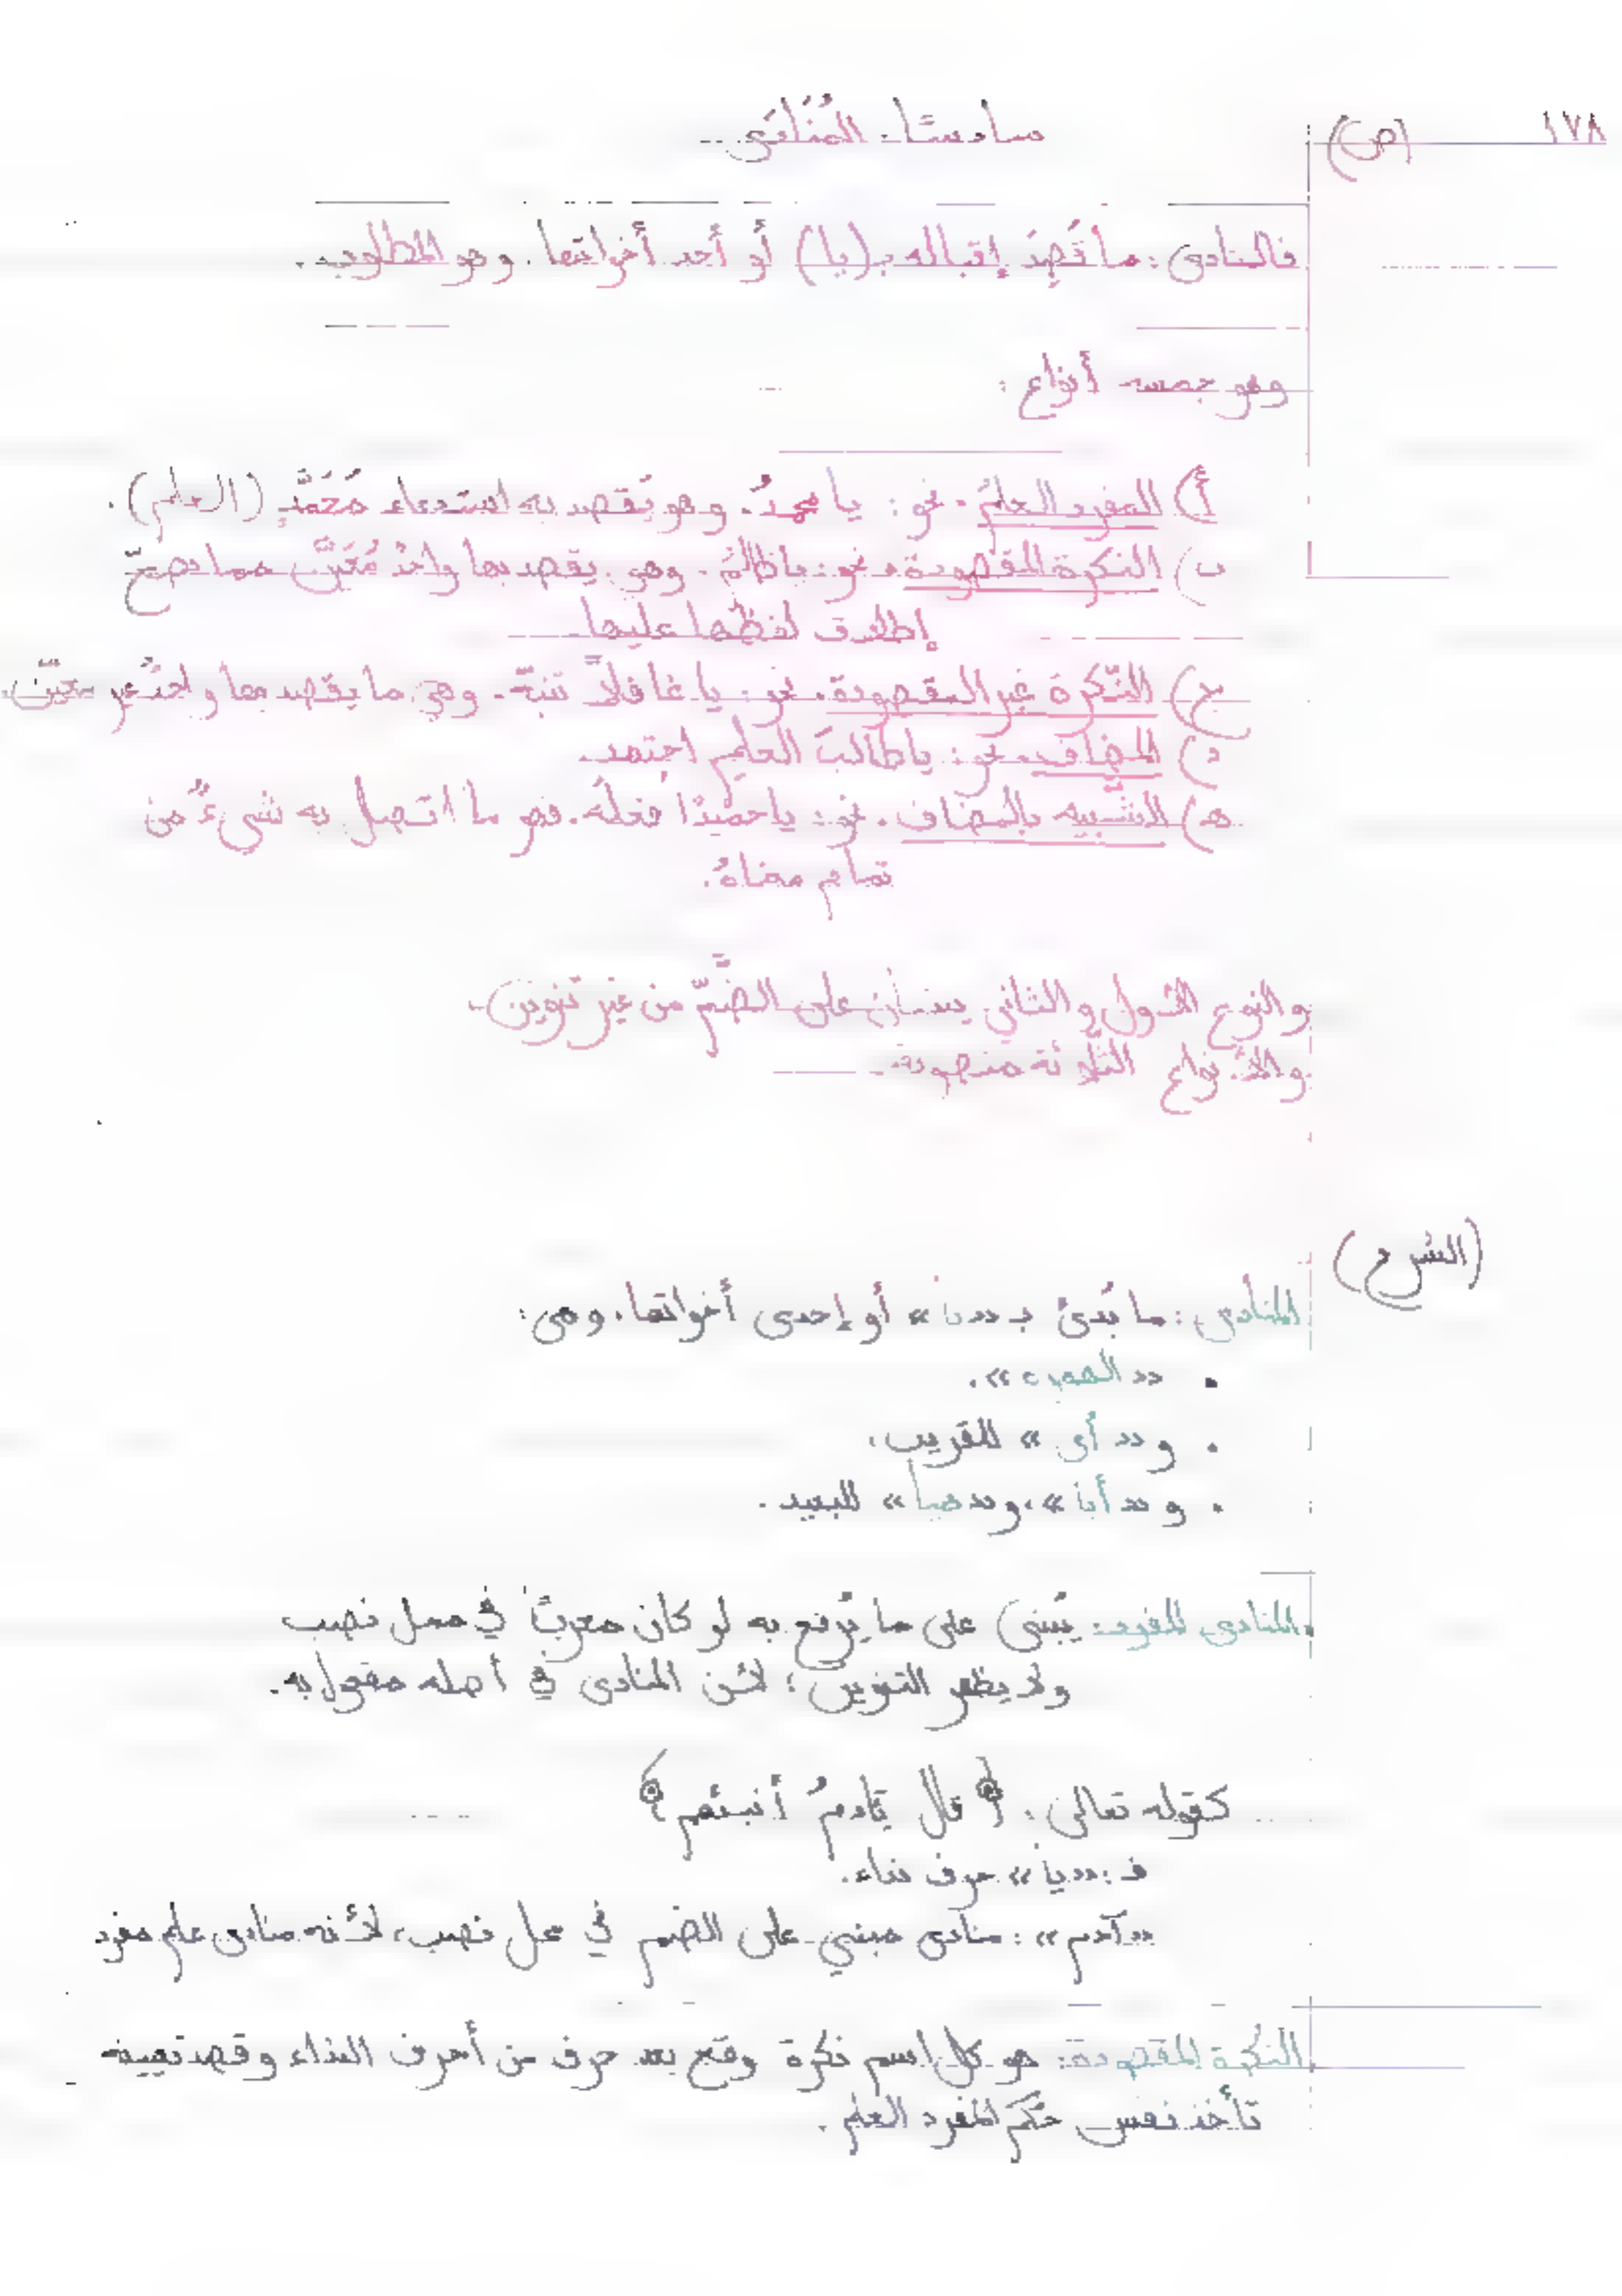 ١٧٨ (ص) سادسًا. المُنَادَى
فالمنادى: ما قُصِدَ إقباله بـ(يا) أو أحد أخواتها. وهو المطلوب.
وهو خمسة أنواع:
أ) المفرد العلمُ. نحو: يا محمدُ. وهو يُقصد به استدعاء مُحَمَّدٍ (العلم).
ب) النكرة المقصودة. نحو: يا ظالمُ. وهي يقصد بها واحدٌ مُعَيَّنٌ مما يصحّ
إطلاق لفظها عليها.
ج) النّكرة غير المقصودة. نحو: يا غافلاً تنبّهْ. وهي ما يقصد بها واحدٌ غير معيّن.
د) المضاف. نحو: يا طالبَ العلمِ اجتهد.
هـ) الشّبيه بالمضاف. نحو: يا حميدًا فعلُه. فهو ما اتصل به شيءٌ من
تمام معناهُ.
والنوع الأول والثاني يبنيان على الضّمّ من غير تنوين.
والأنواع الثلاثة منصوبة.
(الشرح)
المنادى: ما بُدئ بـ «يا» أو إحدى أخواتها، وهي:
• «الهمزة».
• و «أي» للقريب.
• و «أيا»، و«هيا» للبعيد.
المنادى المفرد: يُبنى على ما يُرفع به لو كان معربًا في محل نصب
ولا يظهر التنوين؛ لأن المنادى في أصله مفعول به.
كقوله تعالى: ﴿قال يَٰادمُ أنبئهم﴾
فـ: «يا» حرف نداء.
«آدم»: منادى مبني على الضم في محل نصب، لأنه منادى علم مفرد
النكرة المقصودة: هو كل اسم نكرة وقع بعد حرف من أحرف النداء وقصد تعيينه
تأخذ نفس حُكمَ المفرد العلم.